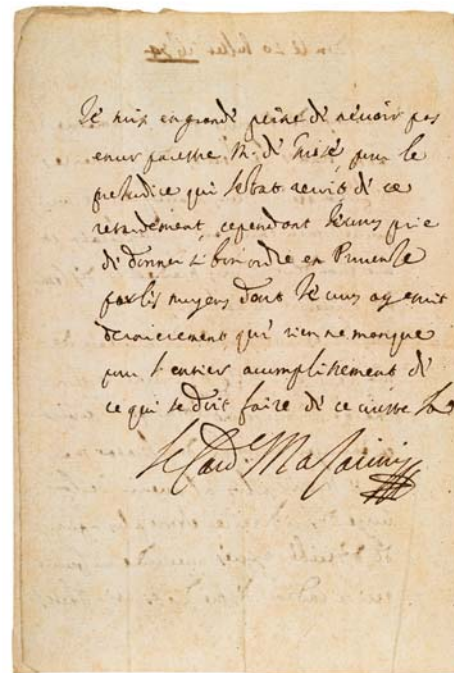 Je suis en grande peine de ne voir pas
encor paroitre Mr. de Guise pour le
prejudice qui
retardement, cependant Je vous prie
de donner si bon ordre en Provence
par les moyens dont Je vous ay escrit
dernierement qui rien ne manque
pour l'entier acumplissement de
ce qui se doit faire de ce costé la
le Card. Mazarini